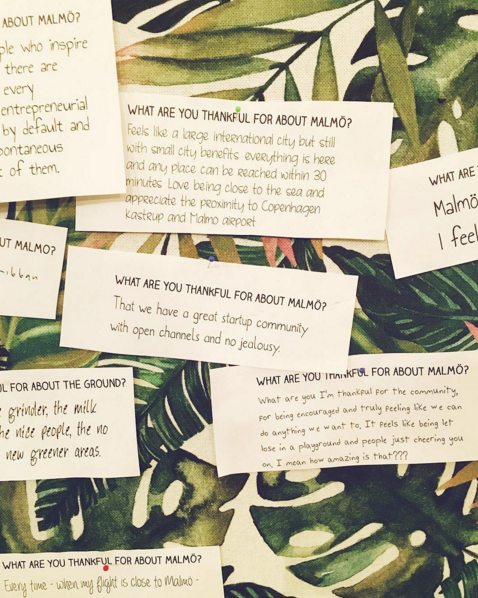 ABOUT MALMÖ?
ple who inspire
there are
every
entrepreneurial
by default and
pontaneous
of them.
WHAT ARE YOU THANKFUL FOR ABOUT MALMÖ?
Feels like a large international city but still
with small city benefits everything is here
and any place can be reached within 30
minutes Love being close to the sea and
appreciate the proximity to Copenhagen
Kastrup and Malmo airport
WHAT ARE
Malmö
I feel
UT MALMO?
WHAT ARE YOU THANKFUL FOR ABOUT MALMÖ?
That we have a great startup community
with open channels and no jealousy.
UL FOR ABOUT THE GROUND?
grinder, the milk
he nice people, the no
new greener areas.
WHAT ARE YOU THANKFUL FOR ABOUT MALMÖ?
What are you I'm thankful for the community,
for being encouraged and truly feeling like we can
do anything we want to. It feels like being let
lose in a playground and people just cheering you
on. I mean how amazing is that???
WHAT ARE YOU THANKFUL FOR ABOUT MALMÖ?
Every time - when my flight is close to Malmö -